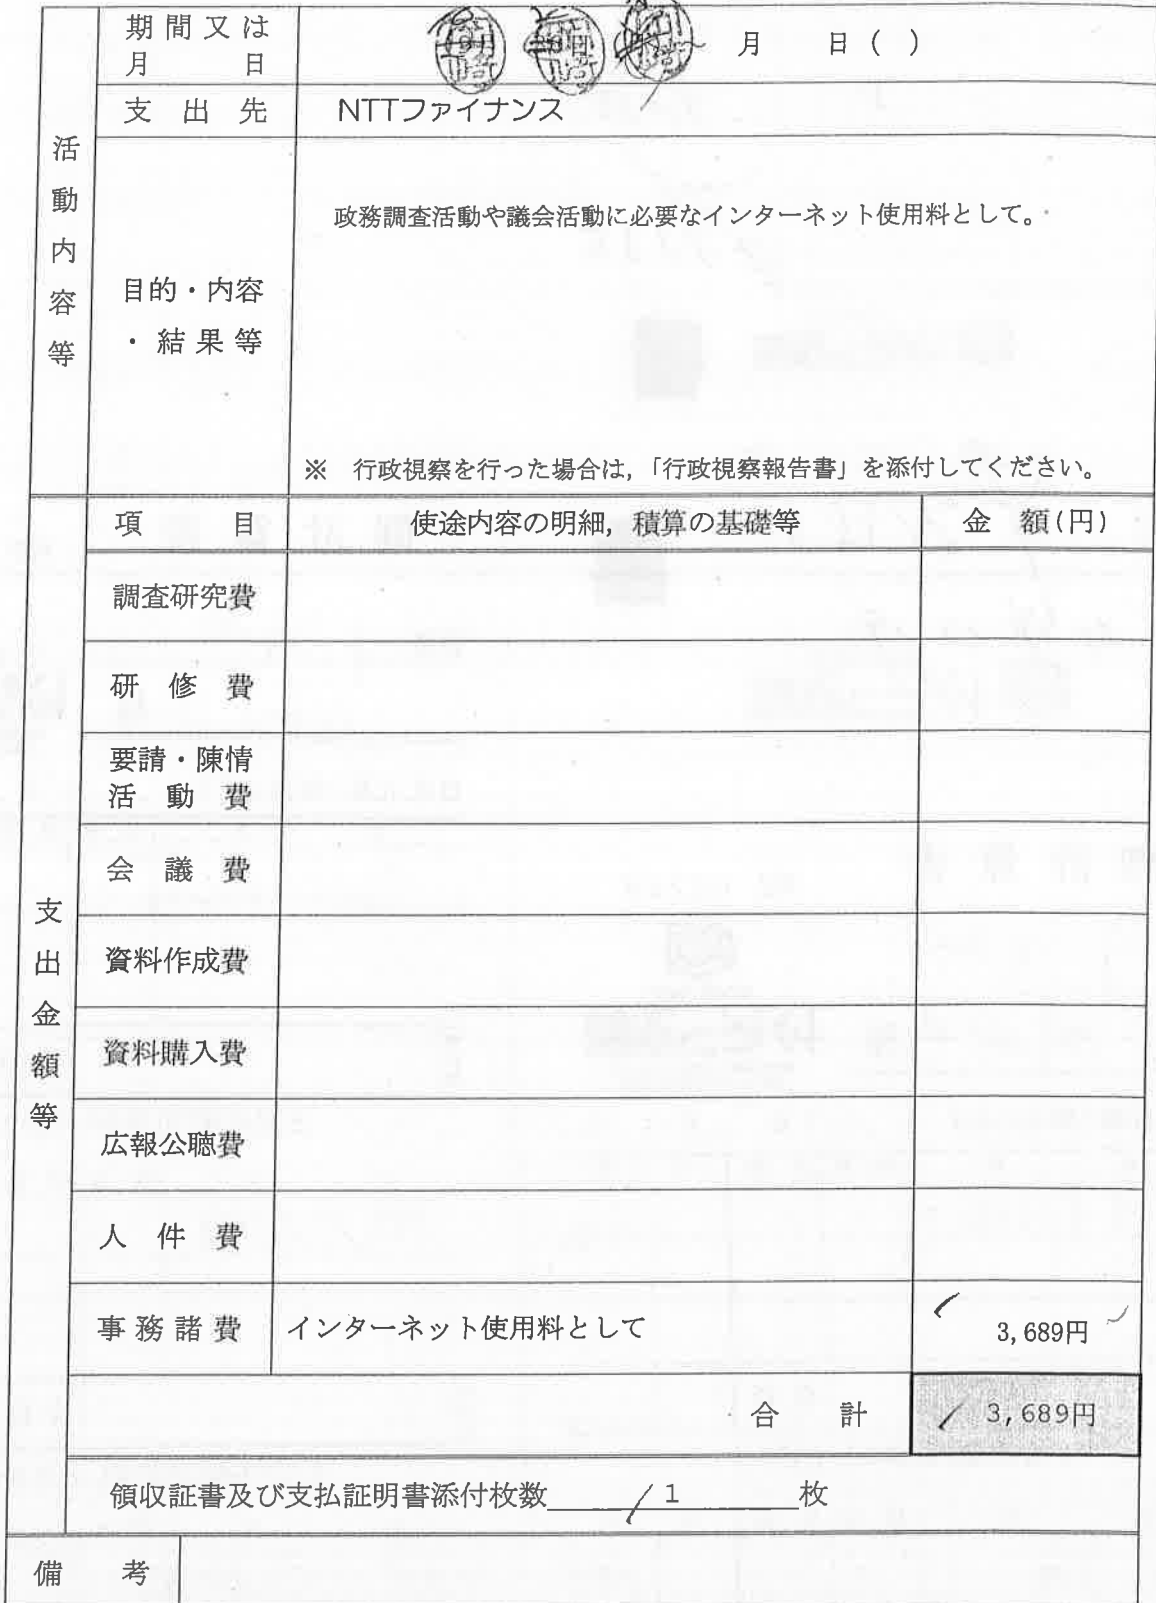 期間又は
月 日
月 日 ( )
支 出 先
NTTファイナンス
活動内容等
政務調査活動や議会活動に必要なインターネット使用料として。
目的・内容
・結果等
※ 行政視察を行った場合は,「行政視察報告書」を添付してください。
項 目 使途内容の明細, 積算の基礎等 金 額(円)
調査研究費
研 修 費
要請・陳情
活 動 費
会 議 費
支出金額等
資料作成費
資料購入費
広報公聴費
人 件 費
事務諸費 インターネット使用料として 3,689円
合 計 3,689円
領収証書及び支払証明書添付枚数 1 枚
備 考